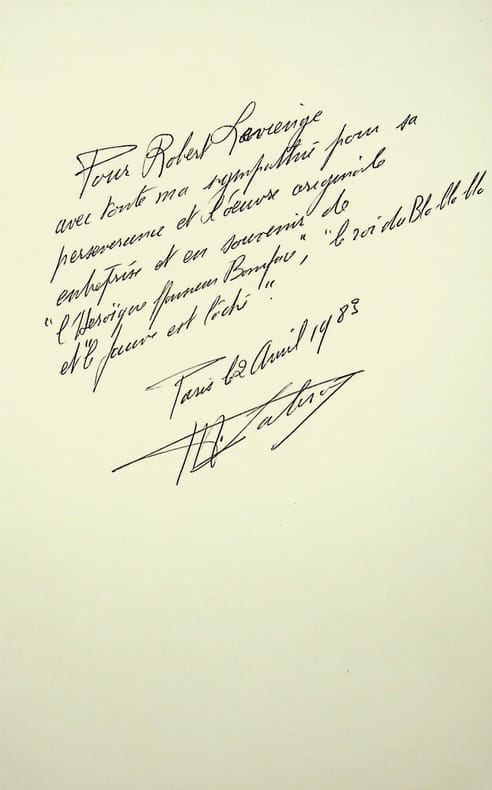 Pour Robert Lavienge
avec toute ma sympathie pour sa
perseverance et l'oeuvre originale
entreprise et en souvenir de
"l'Heroïque Monsieur Boniface", "le roi du Bla bla bla"
et "le fauve est laché".
Paris le 2 Avril 1983
M. Labro